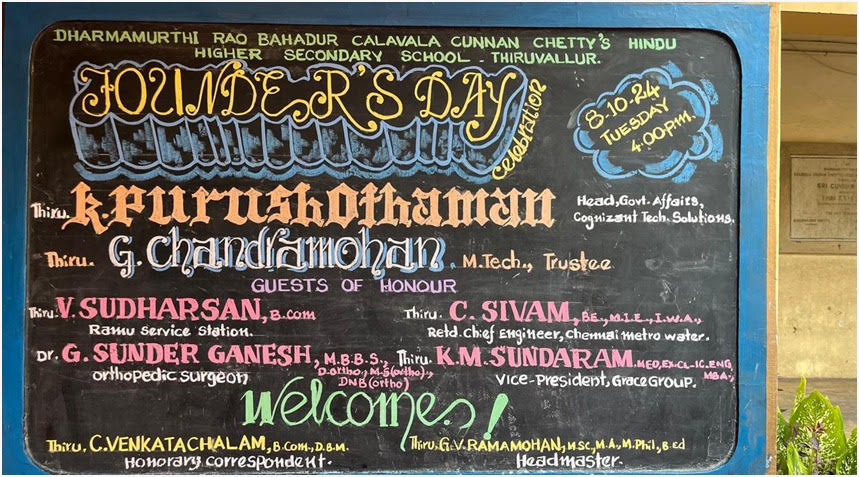 DHARMAMURTHI RAO BAHADUR CALAVALA CUNNAN CHETTY'S HINDU
HIGHER SECONDARY SCHOOL - THIRUVALLUR.
FOUNDER'S DAY celebration
8-10-24
TUESDAY
4.00p.m.
Thiru. K. Purushothaman
Head, Govt. Affairs,
Cognizant Tech. Solutions.
Thiru. G. Chandramohan. M.Tech., Trustee
GUESTS OF HONOUR
Thiru. V. SUDHARSAN, B.Com
Ramu Service Station.
Thiru. C. SIVAM, B.E., M.I.E., I.W.A.,
Retd. Chief Engineer, Chennai metro water.
Dr. G. SUNDER GANESH, M.B.B.S.,
D.ortho., M.S(ortho).,
DNB(ortho)
orthopedic surgeon
Thiru. K.M. SUNDARAM. MBA.,
Vice-President, Grace Group.
Welcomes!
Thiru. C. VENKATACHALAM, B.Com., D.B.M.
Honorary correspondent.
Thiru. G.V. RAMAMOHAN, M.SC., M.A., M.Phil., B.Ed
Headmaster.